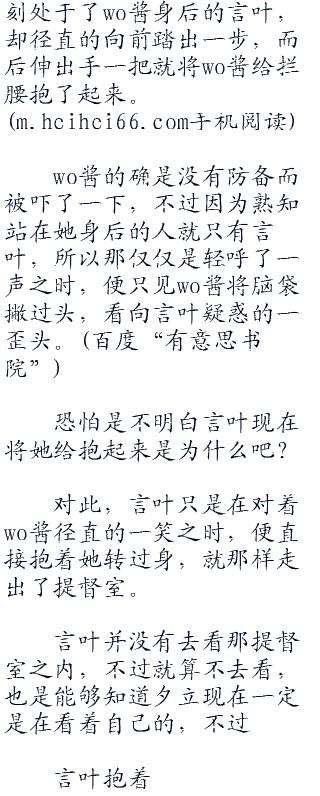 刻处于了wo酱身后的言叶，
却径直的向前踏出一步，而
后伸出手一把就将wo酱给拦
腰抱了起来。
(m.hcihci66.com手机阅读)
wo酱的确是没有防备而
被吓了一下，不过因为熟知
站在她身后的人就只有言
叶，所以那仅仅是轻呼了一
声之时，便只见wo酱将脑袋
撇过头，看向言叶疑惑的一
歪头。(百度“有意思书
院”)
恐怕是不明白言叶现在
将她给抱起来是为什么吧？
对此，言叶只是在对着
wo酱径直的一笑之时，便直
接抱着她转过身，就那样走
出了提督室。
言叶并没有去看那提督
室之内，不过就算不去看，
也是能够知道夕立现在一定
是在看着自己的，不过
言叶抱着